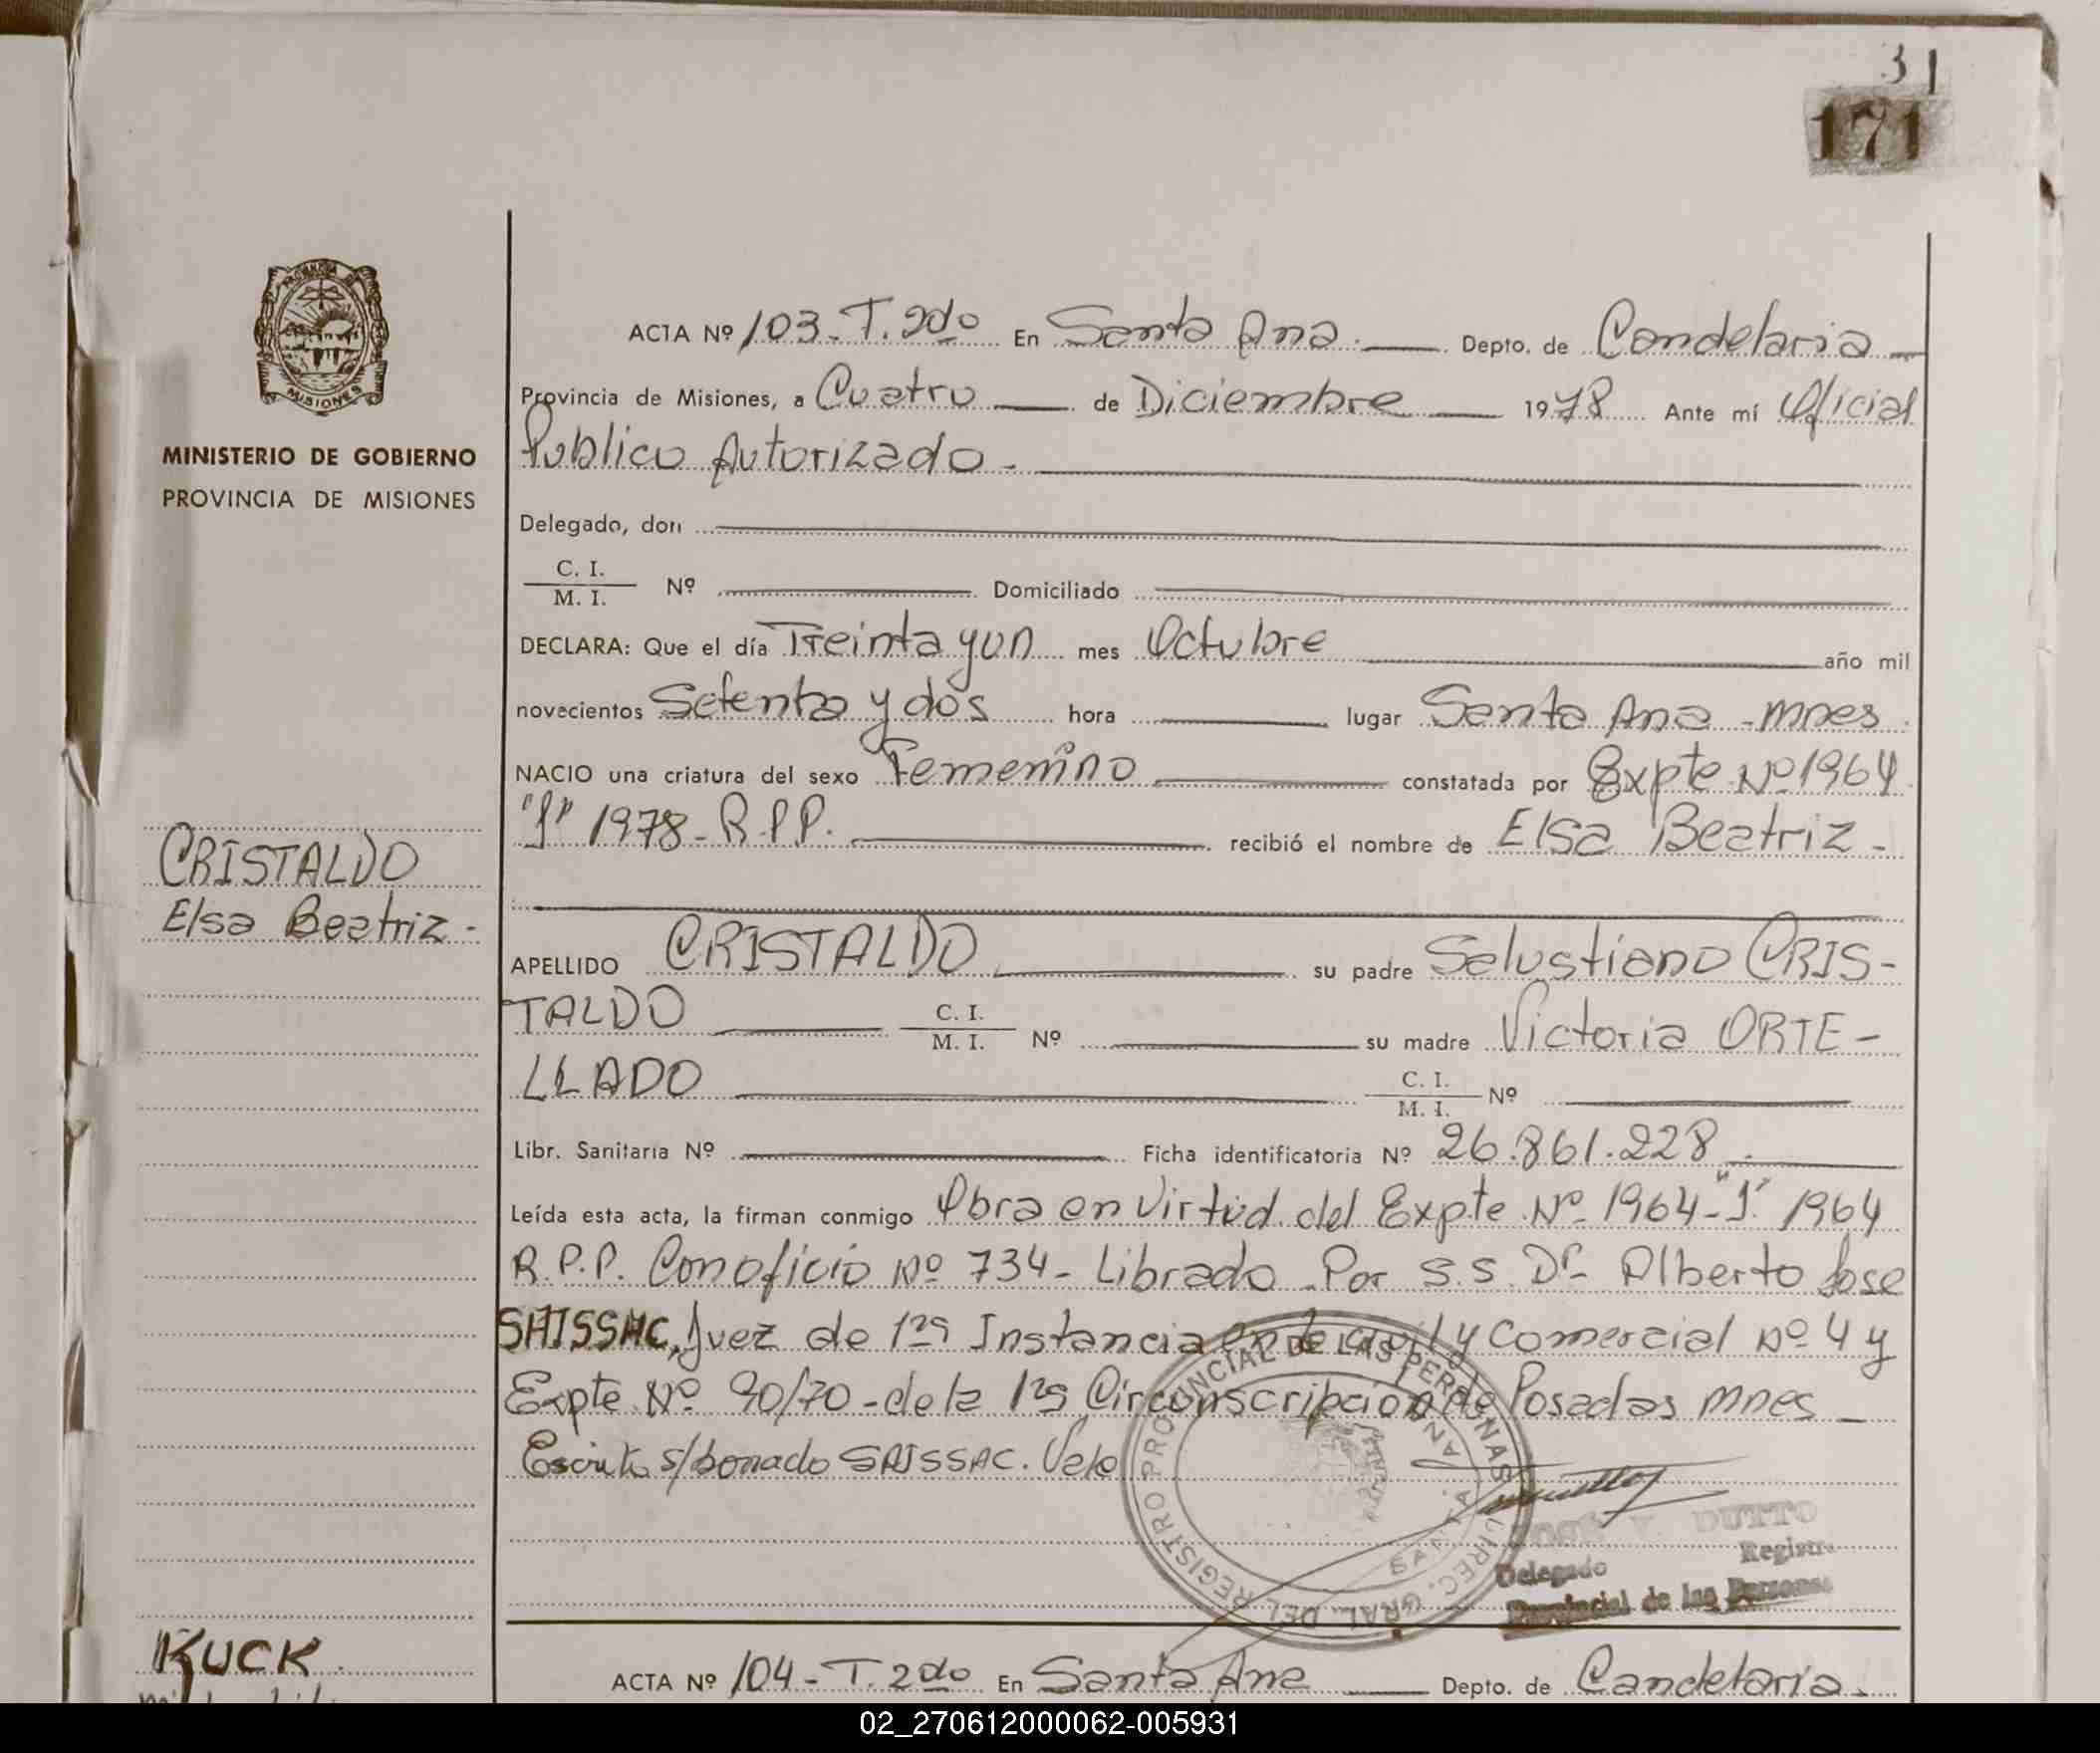 31
171
MINISTERIO DE GOBIERNO
PROVINCIA DE MISIONES
MISIONES
ACTA Nº 103-T. 2do En Santa Ana.— Depto. de Candelaria —
Provincia de Misiones, a Cuatro — de Diciembre — 1978 Ante mí Oficial
Publico Autorizado -
Delegado, don
C. I.
M. I. Nº Domiciliado
DECLARA: Que el día Treinta y un mes Octubre año mil
novecientos Setenta y dos hora lugar Santa Ana - mnes
NACIO una criatura del sexo Femenino constatada por Expte Nº 1964
1978 - R.P.P. recibió el nombre de Elsa Beatriz -
CRISTALDO
Elsa Beatriz -
APELLIDO CRISTALDO su padre Salustiano CRIS-
TALDO C. I.
M. I. Nº su madre Victoria ORTE-
LLADO C. I.
M. I. Nº
Libr. Sanitaria Nº Ficha identificatoria Nº 26.861.228
Leída esta acta, la firman conmigo Obra en Virtud del Expte Nº 1964- 1964
R.P.P. Con oficio Nº 734- Librado Por S.S. Dr- Alberto Jose
SAISSAC, Juez de 1ra Instancia en lo Civil y Comercial Nº 4 y
Expte Nº 90/70 - de la 1ra Circunscripcion de Posadas mnes —
Escrito s/borrado SAISSAC. Vale
DIREC. GRAL. DEL REGISTRO PROVINCIAL DE LAS PERSONAS
SANTA ANA
DUTTO
Delegado Registro
Provincial de las Personas
KUCK
ACTA Nº 104 - T. 2do En Santa Ana — Depto. de Candelaria.
02_270612000062-005931